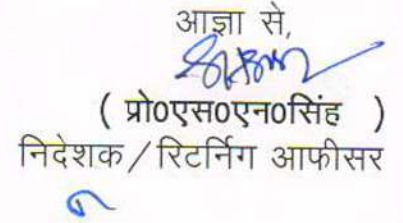 आज्ञा से,
( प्रो०एस०एन०सिंह )
निदेशक / रिटर्निग आफीसर